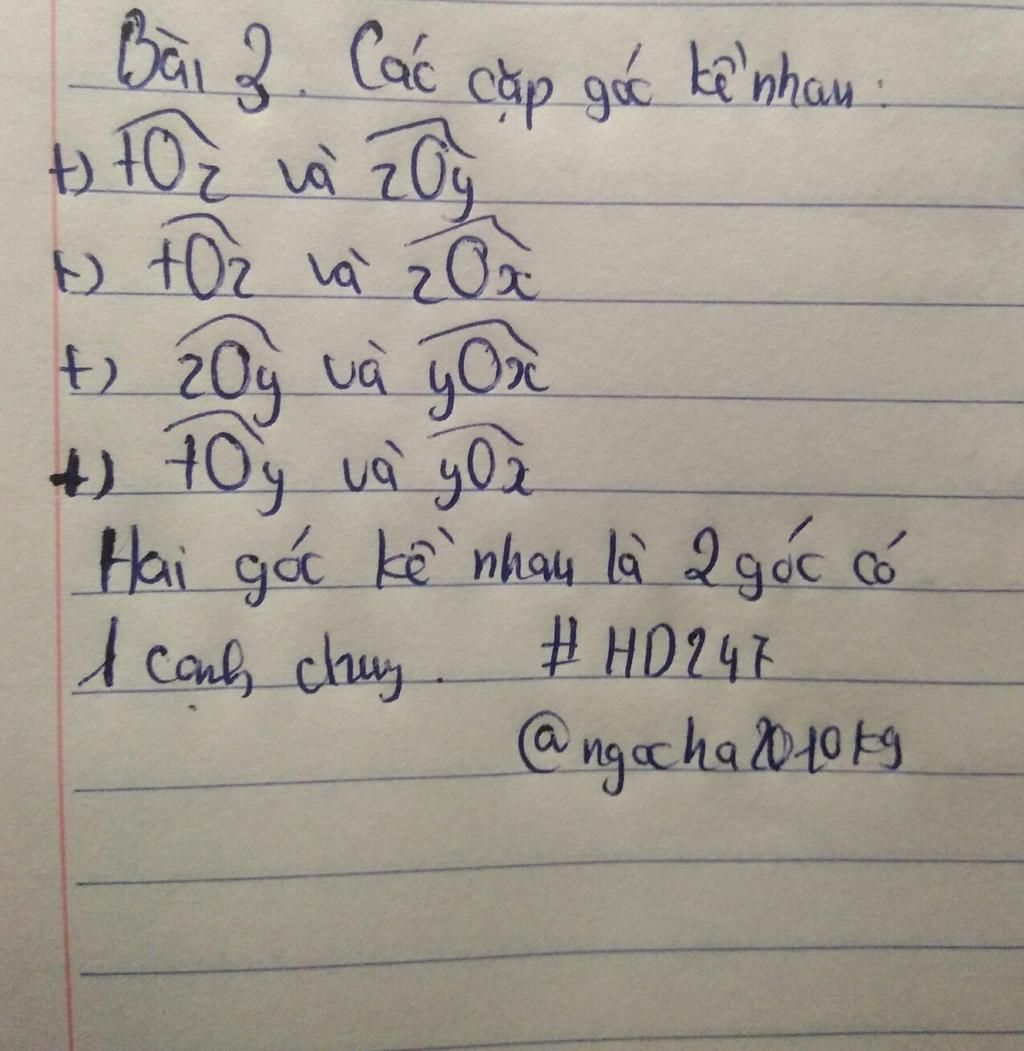 Bài 3. Các cặp góc kề nhau:
+) tOz và zOy
+) tOz và zOx
+) zOy và yOx
+) tOy và yOx
Hai góc kề nhau là 2 góc có
1 cạnh chung. #HD247
@ngocha2010kg